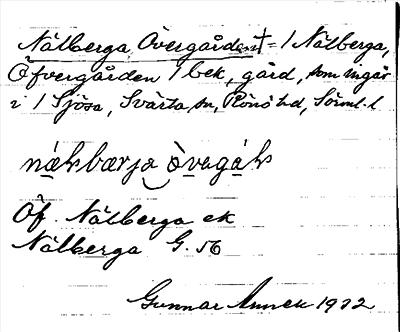 Nälberga, Övergården † = 1 Nälberga,
Öfvergården 1 bek, gård, som ingår
i 1 Sjösa, Svärta sn, Rönö hd, Sörml. l
Öf. Nälberga ek
Nälberga G. 56
Gunnar 1932